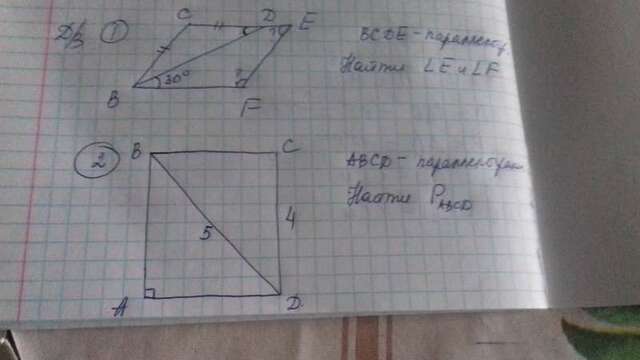 Д/з 1
C D E
30°
B F
BCDE - параллелогр
Найти ∠E и ∠F
2
B C
5
4
A D
ABCD - параллелограм
Найти P ABCD